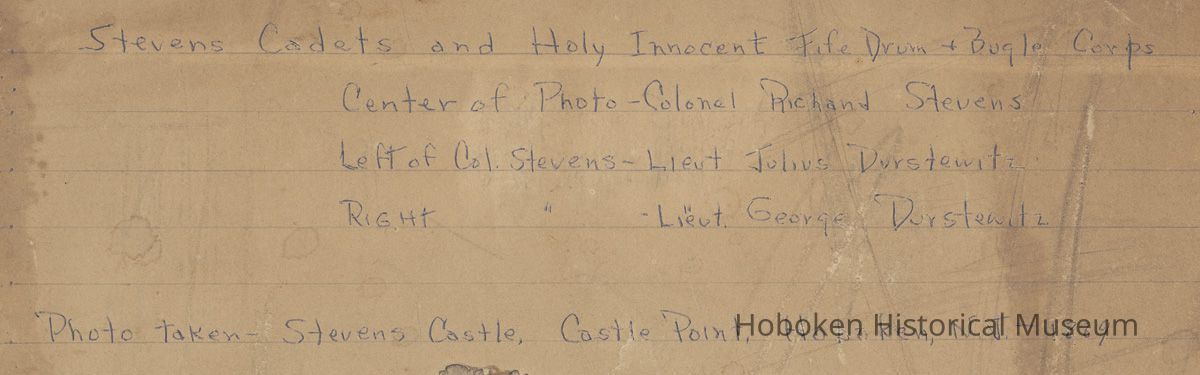 Stevens Cadets and Holy Innocent Fife Drum + Bugle Corps
Center of Photo - Colonel Richard Stevens
Left of Col. Stevens - Lieut Julius Durstewitz
RIGHT " - Lieut. George Durstewitz
Photo taken - Stevens Castle, Castle Point,
Hoboken Historical Museum